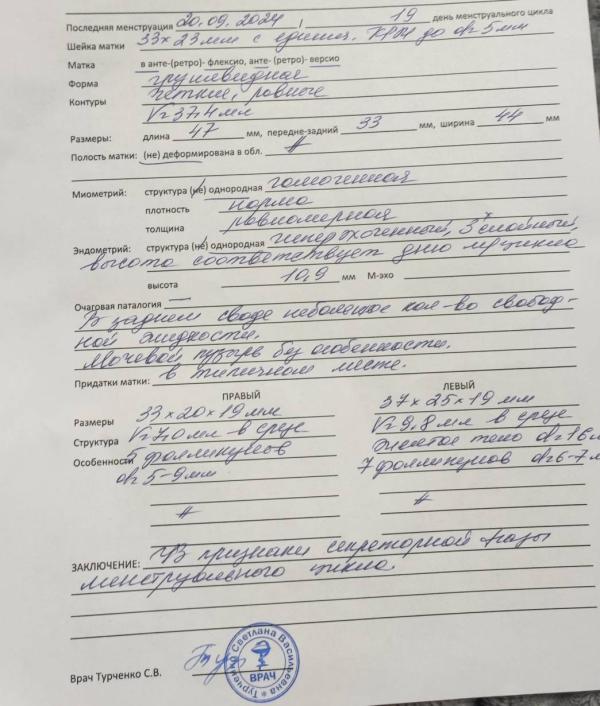 Последняя менструация 20.09.2024 / 19 день менструального цикла
Шейка матки 33х23мм с единич. КРМ до d=5мм
Матка в анте-(ретро)- флексио, анте- (ретро)- версио
Форма грушевидная
Контуры четкие, ровные
V=37,4мл
Размеры: длина 47 мм, передне-задний 33 мм, ширина 44 мм
Полость матки: (не) деформирована в обл. #
Миометрий: структура (не) однородная гомогенная
плотность норма
толщина равномерная
Эндометрий: структура (не) однородная гиперэхогенный, 3х слойный,
высота соответствует дню м.цикла
высота 10,9 мм М-эхо
Очаговая паталогия —
В заднем своде небольшое кол-во свобод-
ной жидкости.
Мочевой пузырь без особенности.
Придатки матки: в типичном месте.
ПРАВЫЙ ЛЕВЫЙ
Размеры 33х20х19мм 37х25х19мм
Структура V=7,0мл в срезе V=9,8мл в срезе
Особенности 5 фолликулов желтое тело d=16
d=5-9мм 7 фолликулов d=6-7
# #
ЗАКЛЮЧЕНИЕ: УЗ признаки секреторной фазы
менструального цикла.
Врач Турченко С.В.
Турченко Светлана Васильевна
ВРАЧ